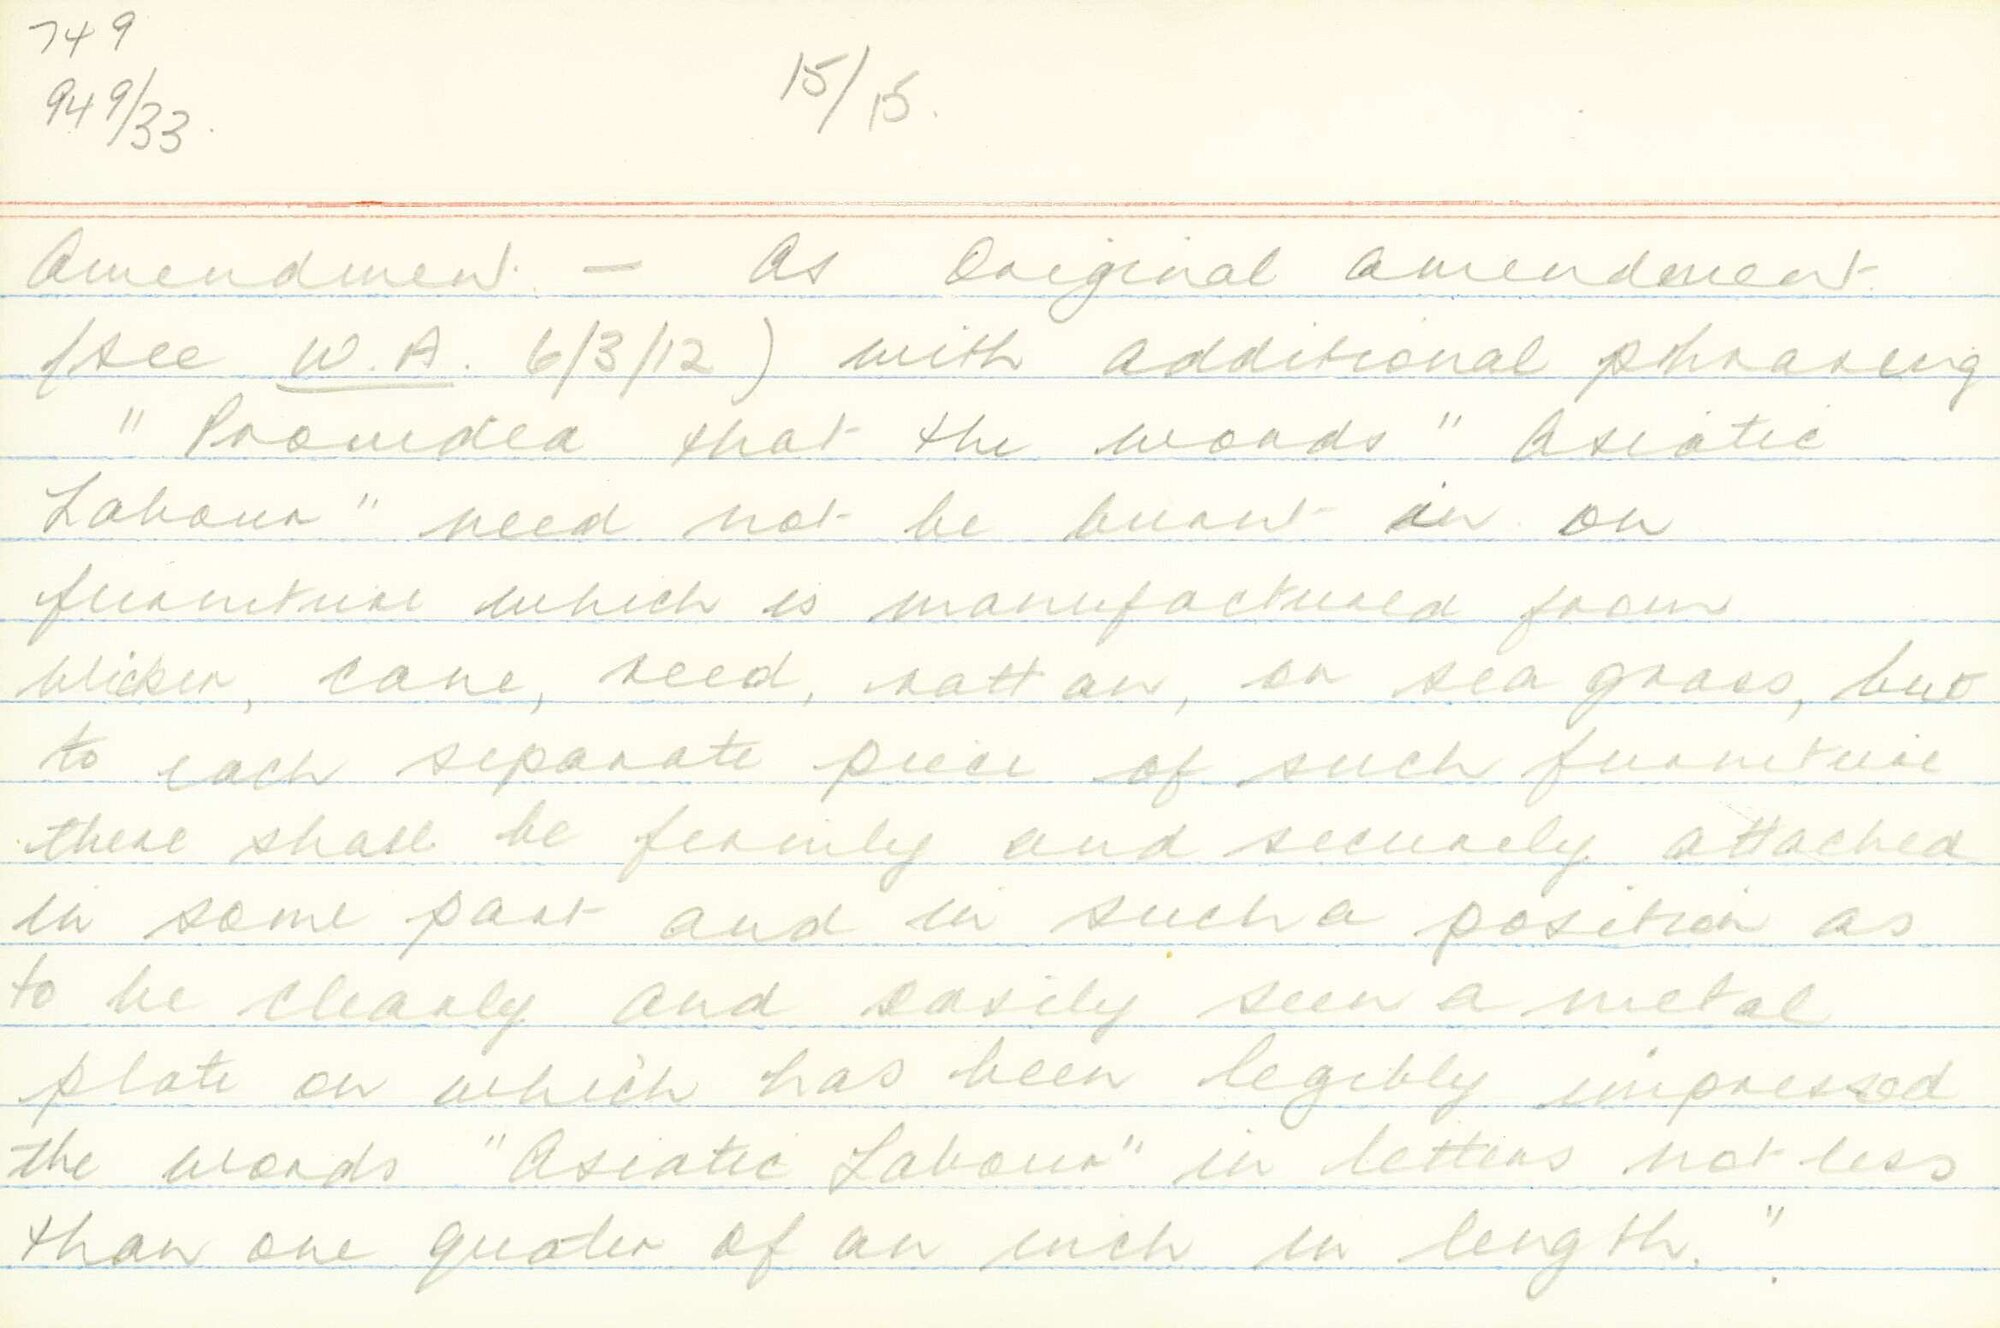 749
949/33.
15/15.
Amendment. — As Original Amendment
(see W.A. 6/3/12) with additional phrasing
" Provided that the words " Asiatic
Labour " need not be burnt in on
furniture which is manufactured from
wicker, cane, reed, rattan, or sea grass, but
to each separate piece of such furniture
there shall be firmly and securely attached
in some part and in such a position as
to be clearly and easily seen a metal
plate on which has been legibly impressed
the words "Asiatic Labour" in letters not less
than one quater of an inch in length."